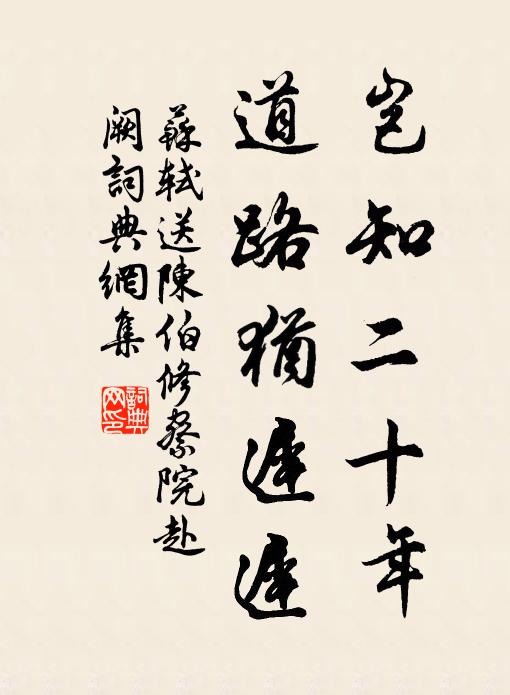 豈知二十年
道路猶遲遲
蘇軾送陳伯修察院赴
闕詞典網集
詞典
网印